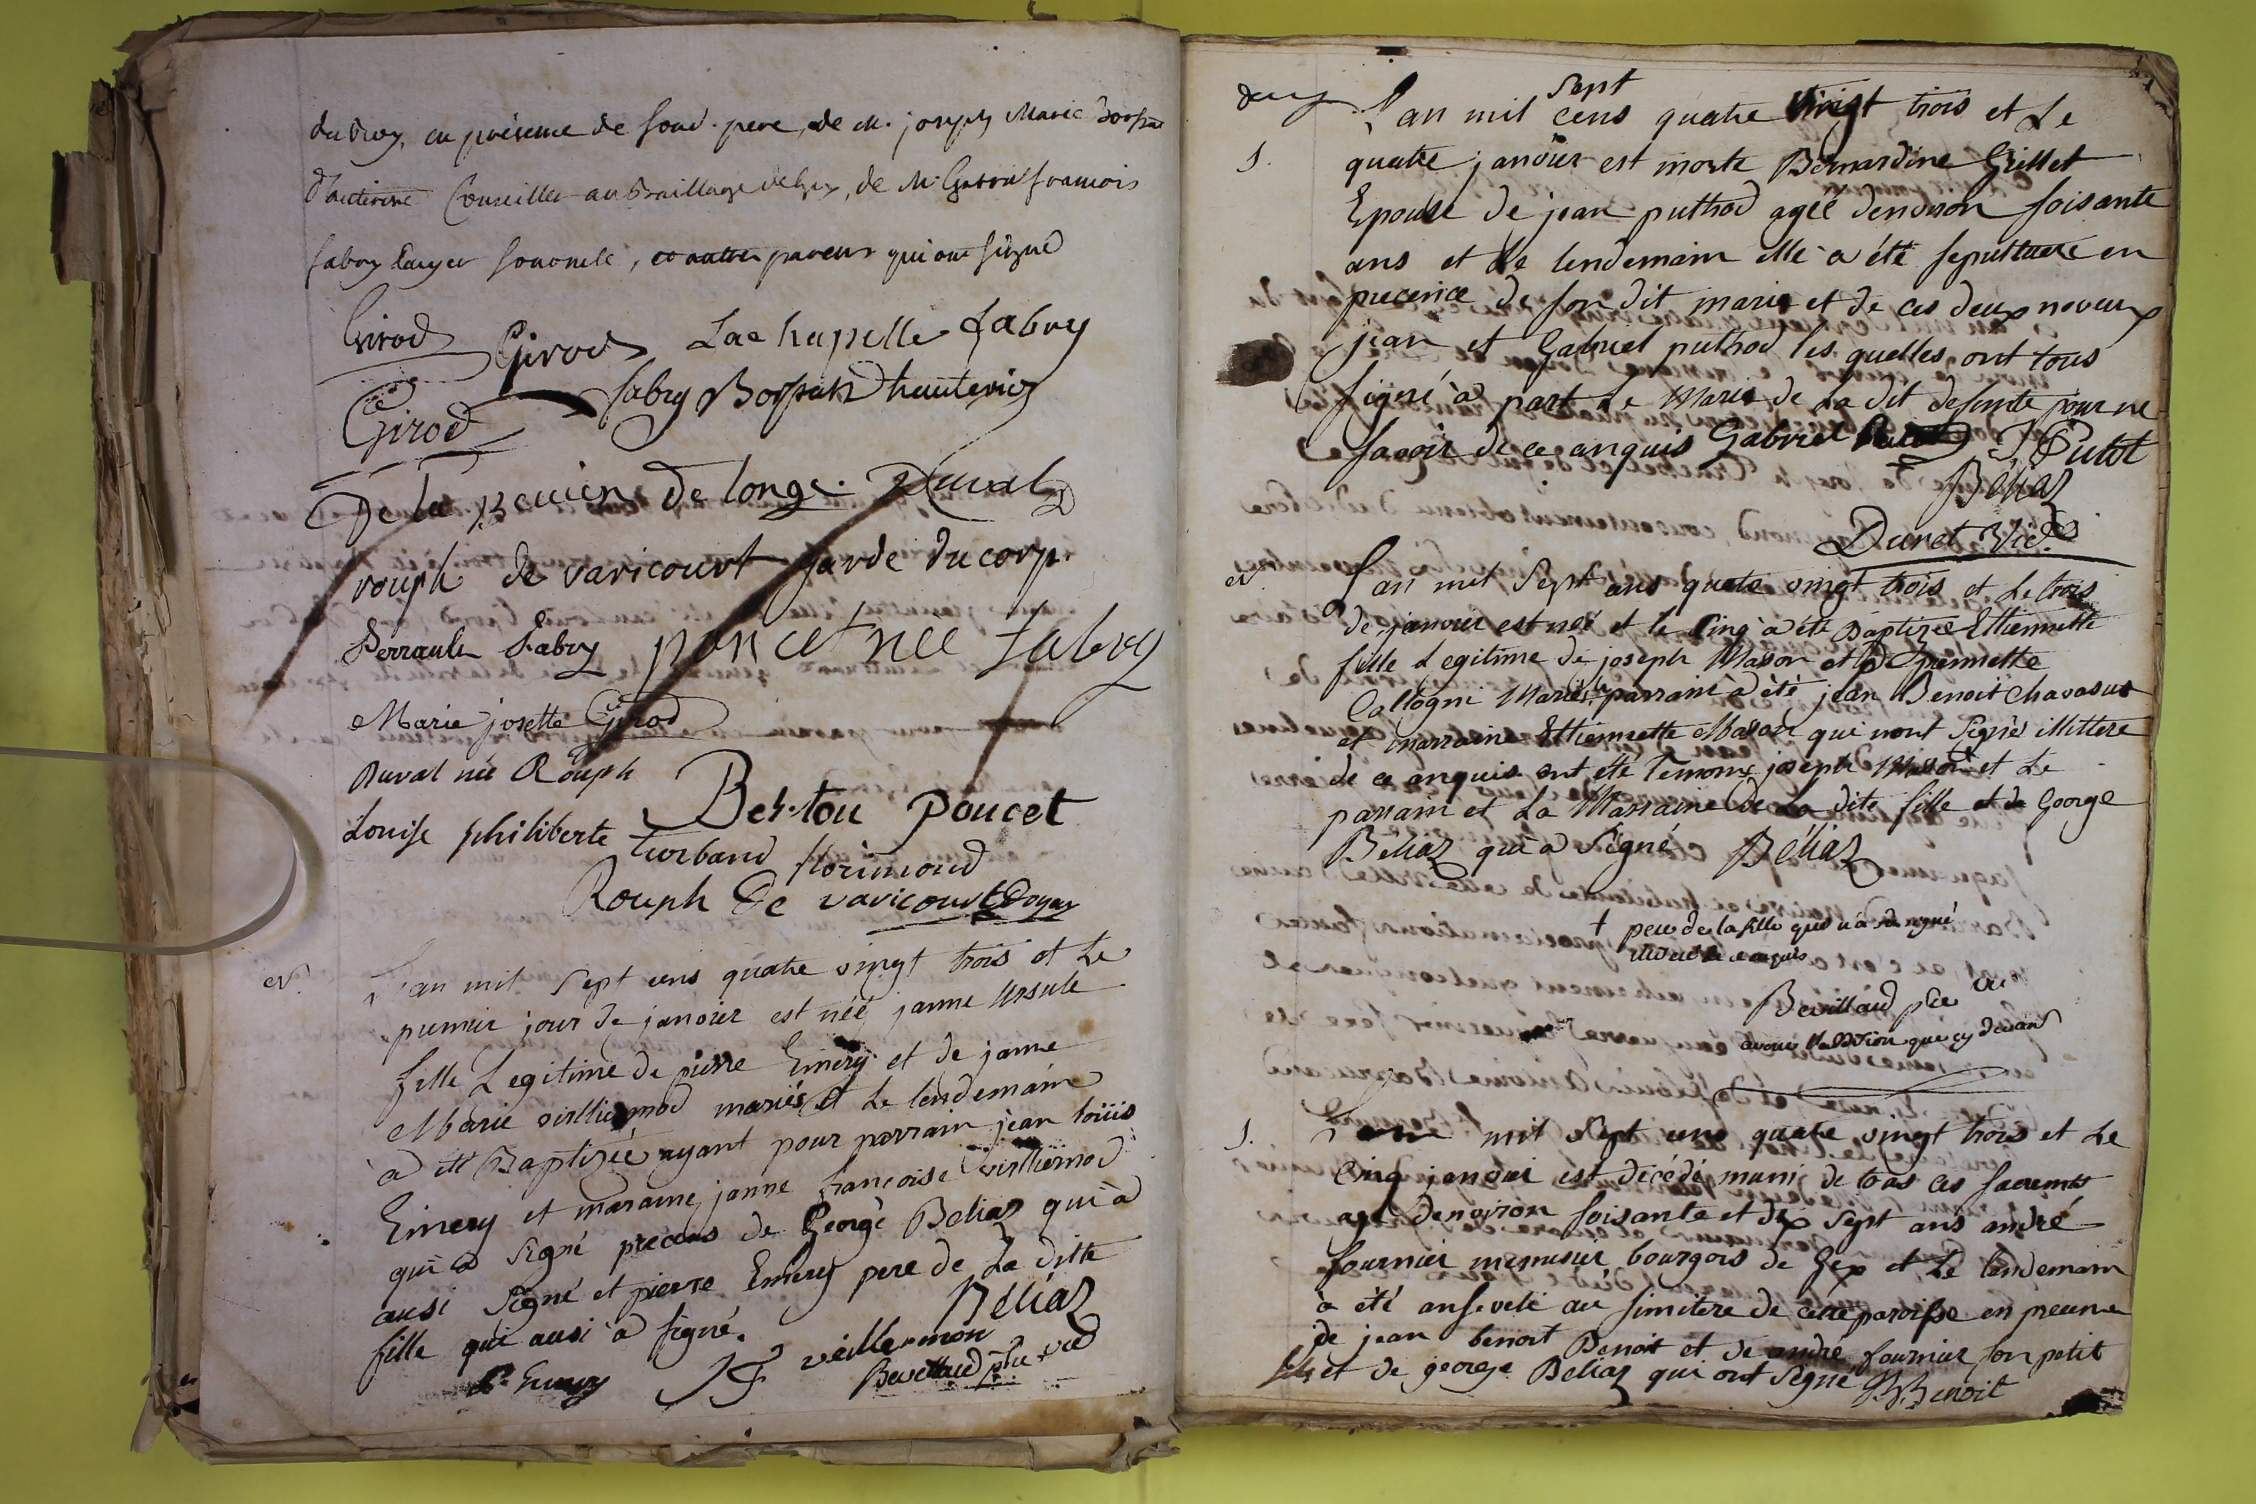 du Roy, en présence de son d. pere, de M. joseph Marie Borssat
d'hauterive Conseiller au Bailliage de Gex, de Mr Gaspar françois
fabry son oncle, et autres parens qui ont signé
Girod Girod Lachapelle fabry
C Girod fabry Borssat Dhauterive
De la de longe. Duval
rouph de varicourt garde du corp.
Perrault Fabry poncet nee fabry
Marie josette Girod
Duval née Rouph
Louise philiberte Berthou poucet
Turband florimond
Rouph de varicourt Doyen
N.
L'an mil sept cens quatre vingt trois et Le
pumier jour de janvier est néé janne Ursule
fille Legitime de pierre Emery et de janne
Marie vislliermod mariés et Le lendemain
à été Baptizéé ayant pour parrain jean loüis
Emery et maraine janne francoise vislliermod
qui a signé precens de George Béliaz qui à
ausi signé et pierre Emery pere de La ditte
fille qui ausi à signé. Béliaz
P. Emery J F veillermon
Bevillaud ptre vic
Gex
S.
L'an mil sept cens quatre vingt trois et Le
quatre janvier est morte Bernardine Grillet
Epouse de jean puthod ageé denviron soisante
ans et Le lendemain elle à été sepulturee en
precence de son dit marie et de ces deux neveux
jean et Gabriel puthod les quelles ont tous
signé à part Le Marie de La dit defunte pour ne
savoir de ce anquis Gabriel J Putot
Béliaz
Duret Vic
N.
L'an mil Sept ans quate vingt trois et Le trois
de janvier est néé et le cinq à été Baptizéé Ettiennette
fille Legitime de joseph Mason et de
Caltogni Mariés parrain à été jean Benoit Chavasus
et marraine Ettiennette Mason qui nont signé illitere
de ce anquis ont été temoins joseph Mason et Le
parrain et La Marraine de La dite fille et de George
Béliaz qui à signé Béliaz
† pere de la fille qui n'a signé
de ce enquis
Bevillaud ptre vic
avoué l'addition que cy devant
S.
L'an mil sept cens quatre vingt trois et Le
Cinq janvier est décédé muni de tous ces sacremts
agé denviron soisante et dix sept ans andré
fournier menusier bourgois de Gex et Le lendemain
à été anseveli au simitere de cette paroisse en precence
de jean benoit Benoit et de andré fournier son petit
fils et de george Beliaz qui ont signé JB Benoit